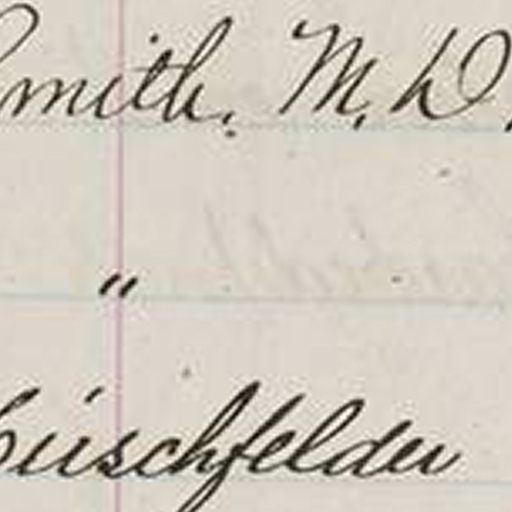 Smith. M.D.
"
Hirschfelder